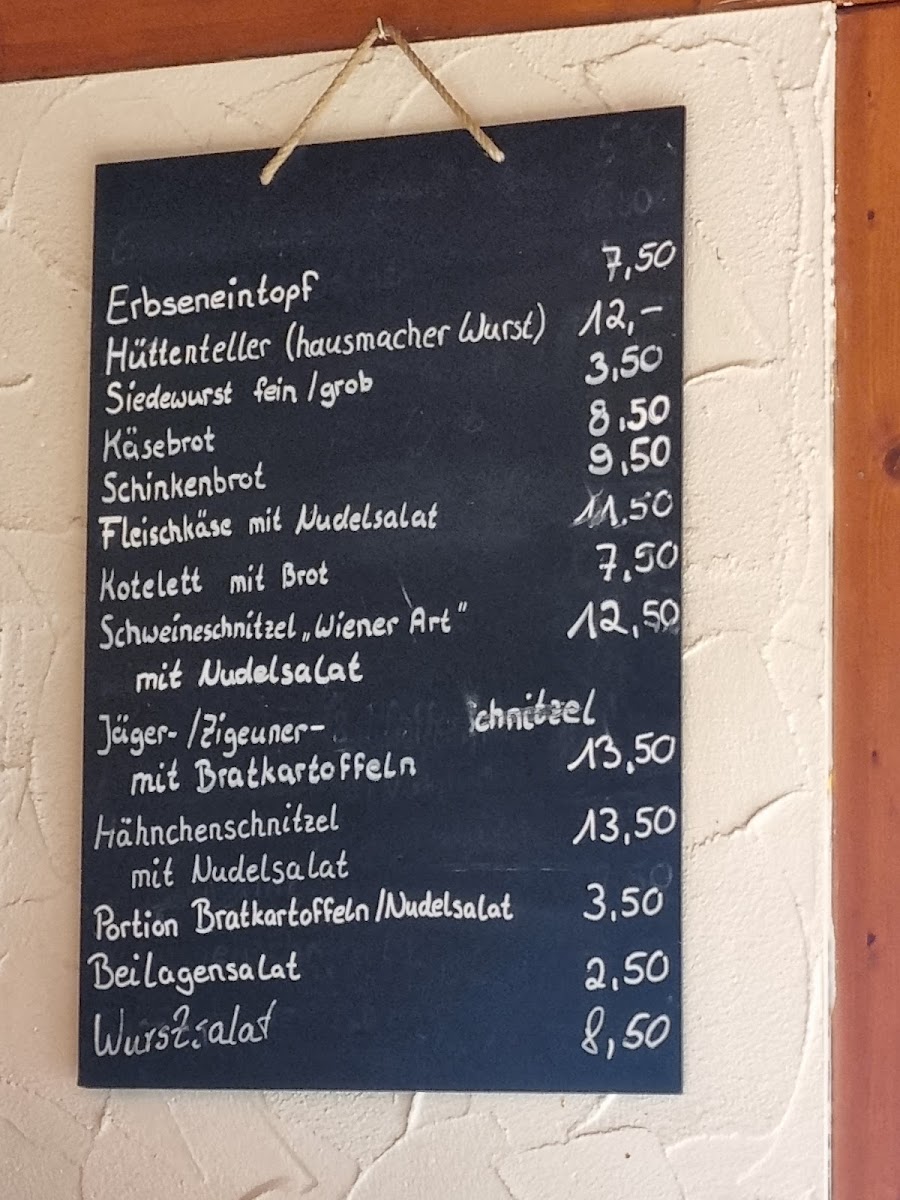 Erbseneintopf 7,50
Hüttenteller (hausmacher Wurst) 12,-
Siedewurst fein/grob 3,50
Käsebrot 8,50
Schinkenbrot 9,50
Fleischkäse mit Nudelsalat 11,50
Kotelett mit Brot 7,50
Schweineschnitzel „Wiener Art" 12,50
mit Nudelsalat
Jäger-/Zigeuner- schnitzel
mit Bratkartoffeln 13,50
Hähnchenschnitzel 13,50
mit Nudelsalat
Portion Bratkartoffeln/Nudelsalat 3,50
Beilagensalat 2,50
Wurstsalat 8,50